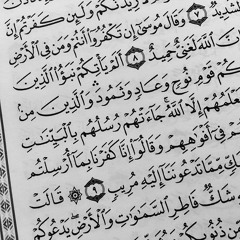 زِيدَنَّكُمْ وَلَئِن كَفَرْتُمْ إِنَّ
لَشَدِيدٌ ٧ وَقَالَ مُوسَىٰٓ إِن تَكْفُرُوٓا۟ أَنتُمْ وَمَن فِى ٱلْأَرْضِ
إِنَّ ٱللَّهَ لَغَنِىٌّ حَمِيدٌ ٨ أَلَمْ يَأْتِكُمْ نَبَؤُا۟ ٱلَّذِينَ
كُمْ قَوْمِ نُوحٍ وَعَادٍ وَثَمُودَ وَٱلَّذِينَ مِنۢ
عْلَمُهُمْ إِلَّا ٱللَّهُ جَآءَتْهُمْ رُسُلُهُم بِٱلْبَيِّنَٰتِ
مْ فِىٓ أَفْوَٰهِهِمْ وَقَالُوٓا۟ إِنَّا كَفَرْنَا بِمَآ أُرْسِلْتُم
كٍّ مِّمَّا تَدْعُونَنَآ إِلَيْهِ مُرِيبٍ ٩ ۞ قَالَتْ
شَكٌّ فَاطِرِ ٱلسَّمَٰوَٰتِ وَٱلْأَرْضِ يَدْعُوكُمْ